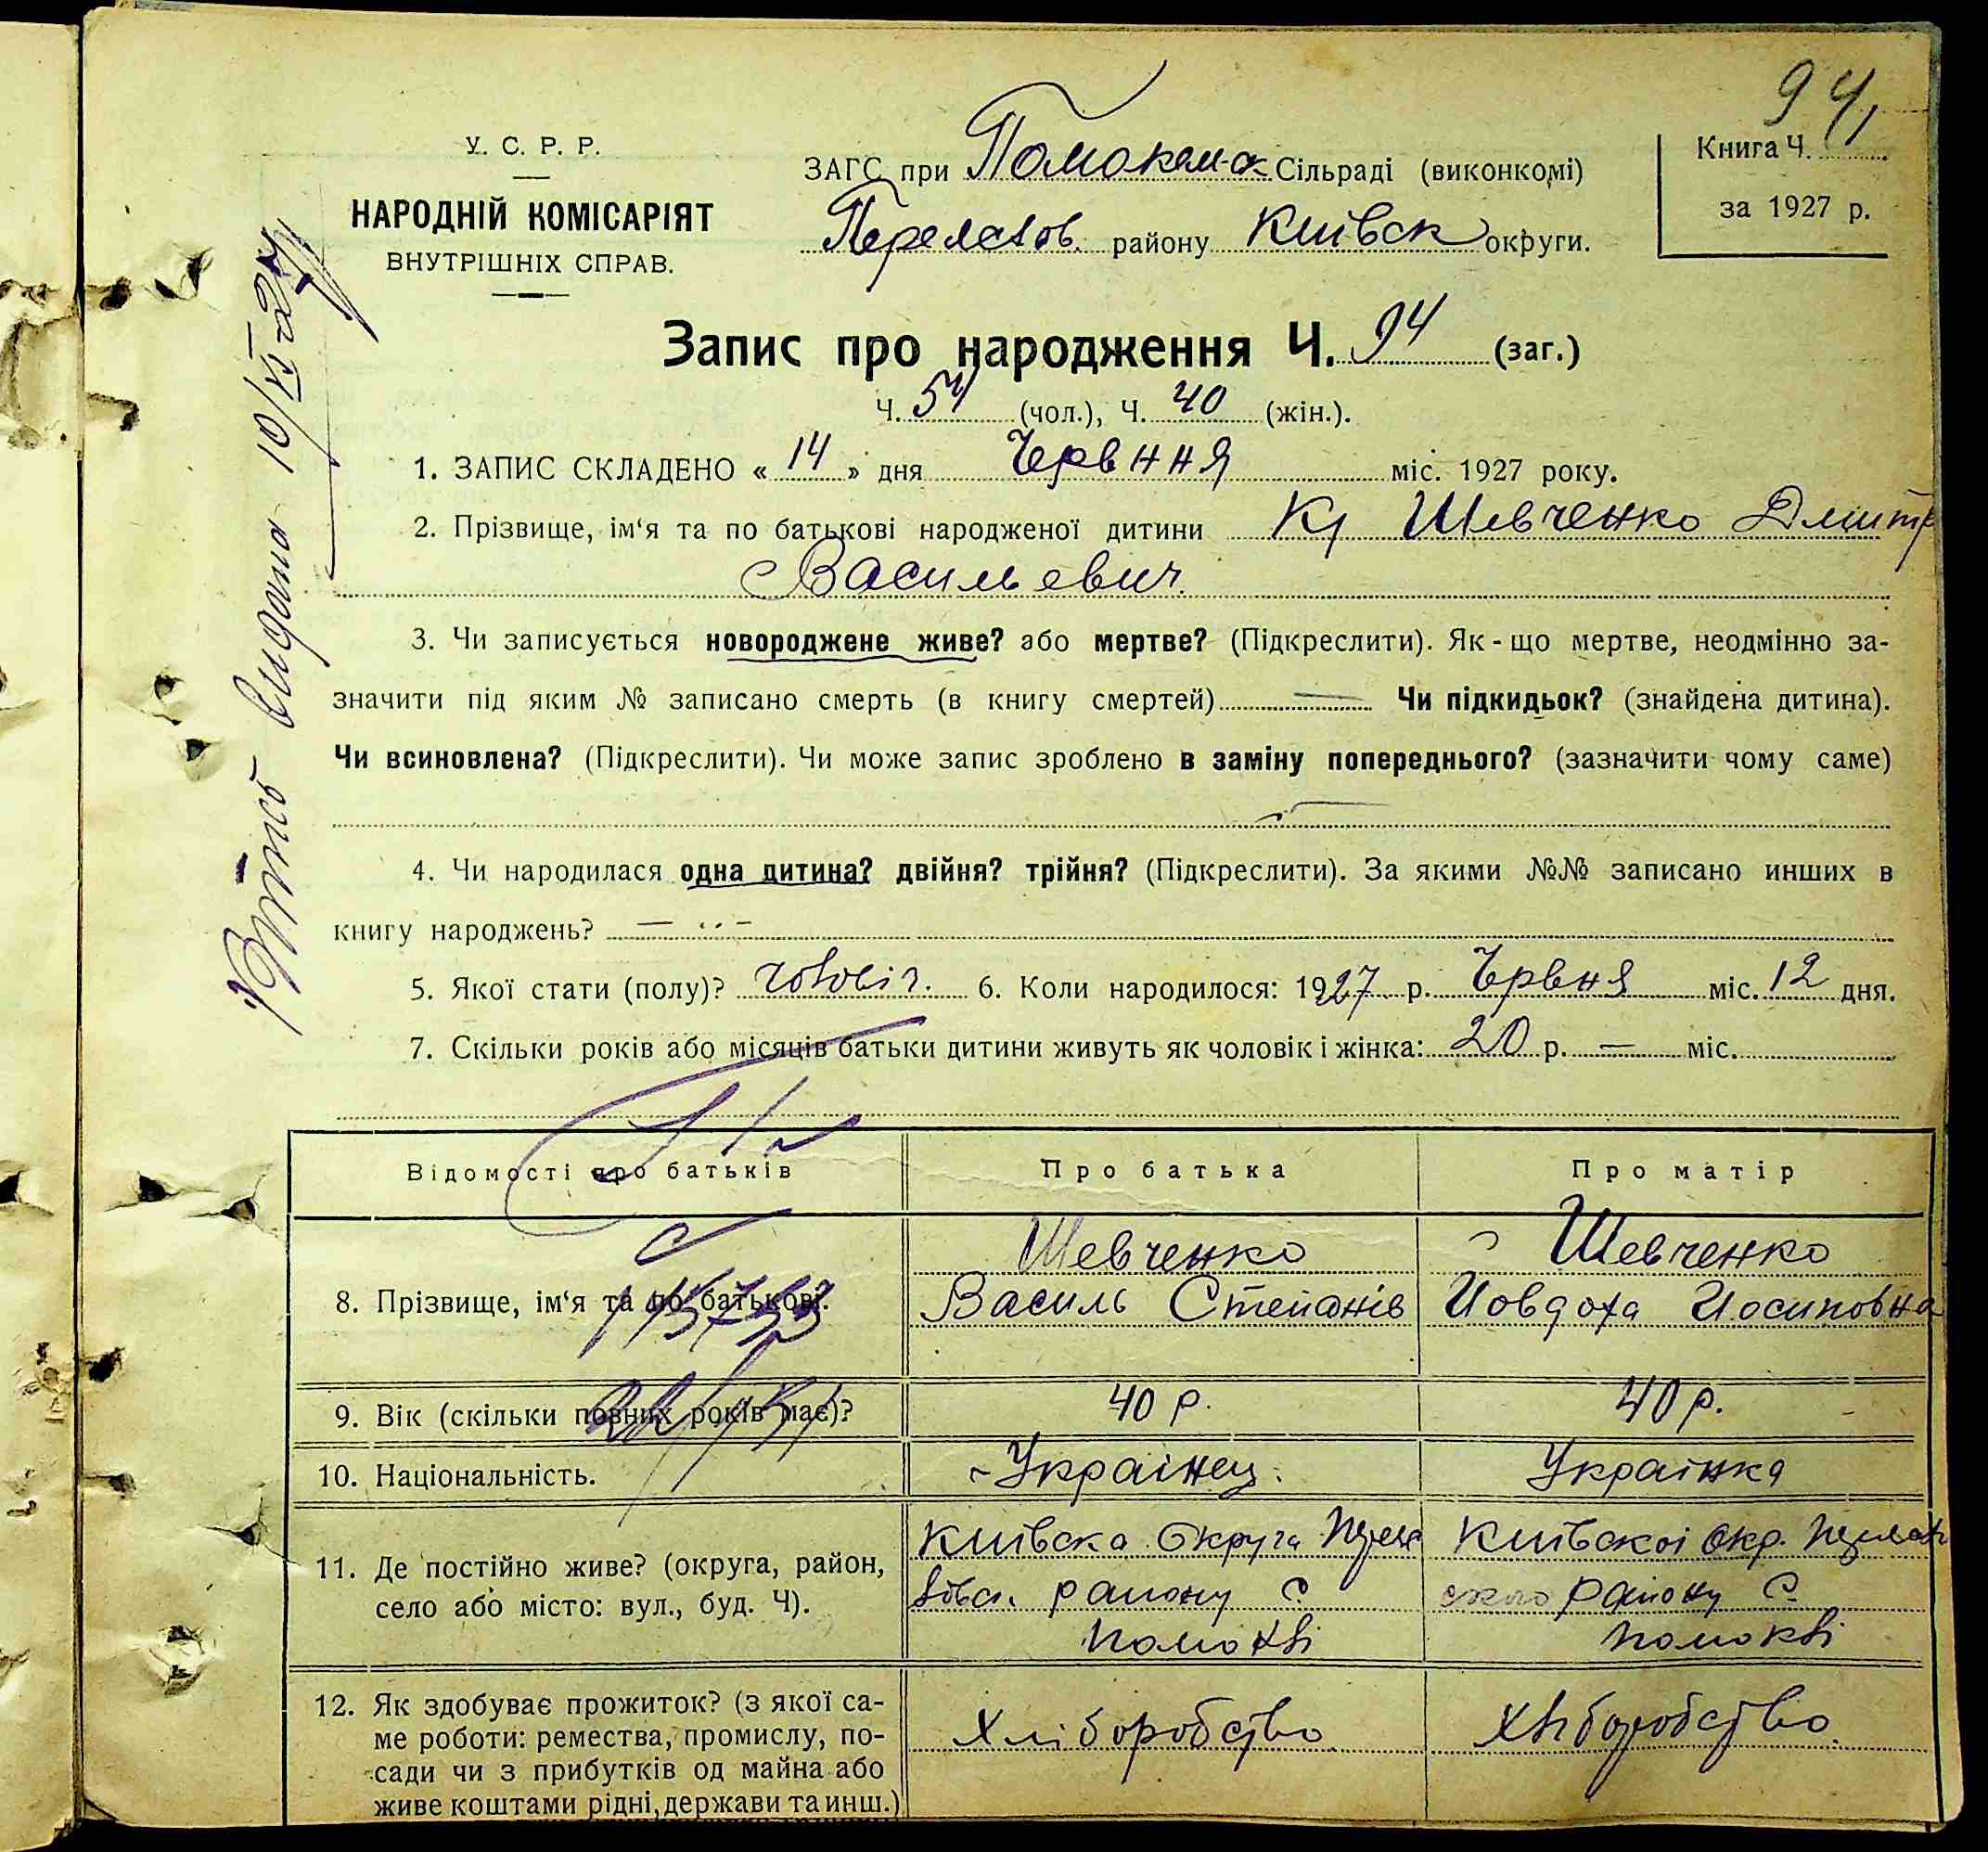 94
У. С. Р. Р.
НАРОДНІЙ КОМІСАРІЯТ
ВНУТРІШНІХ СПРАВ.
ЗАГС при Помокем-ск Сільраді (виконкомі)
Переясов. району Київск округи.
Книга Ч.
за 1927 р.
Запис про народження Ч. 94 (заг.)
Ч. 54 (чол.), Ч. 40 (жін.).
1. ЗАПИС СКЛАДЕНО « 14 » дня Червння міс. 1927 року.
2. Прізвище, ім‘я та по батькові народженої дитини Шевченко Дмитр
Васильевич.
3. Чи записується новороджене живе? або мертве? (Підкреслити). Як-що мертве, неодмінно за-
значити під яким № записано смерть (в книгу смертей) — Чи підкидьок? (знайдена дитина).
Чи всиновлена? (Підкреслити). Чи може запис зроблено в заміну попереднього? (зазначити чому саме)
4. Чи народилася одна дитина? двійня? трійня? (Підкреслити). За якими №№ записано инших в
книгу народжень? —
5. Якої стати (полу)? чоловіч. 6. Коли народилося: 1927 р. Червня міс. 12 дня.
7. Скільки років або місяців батьки дитини живуть як чоловік і жінка: 20 р. — міс.
Відомості про батьків Про батька Про матір
8. Прізвище, ім‘я та по батькові.
Шевченко
Василь Степанів
Шевченко
Иовдоха Иосиповна
9. Вік (скільки повних років має)? 40 р. 40 р.
10. Національність. Украінец. Украінка
11. Де постійно живе? (округа, район,
село або місто: вул., буд. Ч).
Київска Округа
району с.
помоклі
Київскоі Окр.
ского району с.
помоклі
12. Як здобуває прожиток? (з якої са-
ме роботи: ремества, промислу, по-
сади чи з прибутків од майна або
живе коштами рідні, держави та инш.)
Хліборобство
хліборобство.
видана 10/VI-27